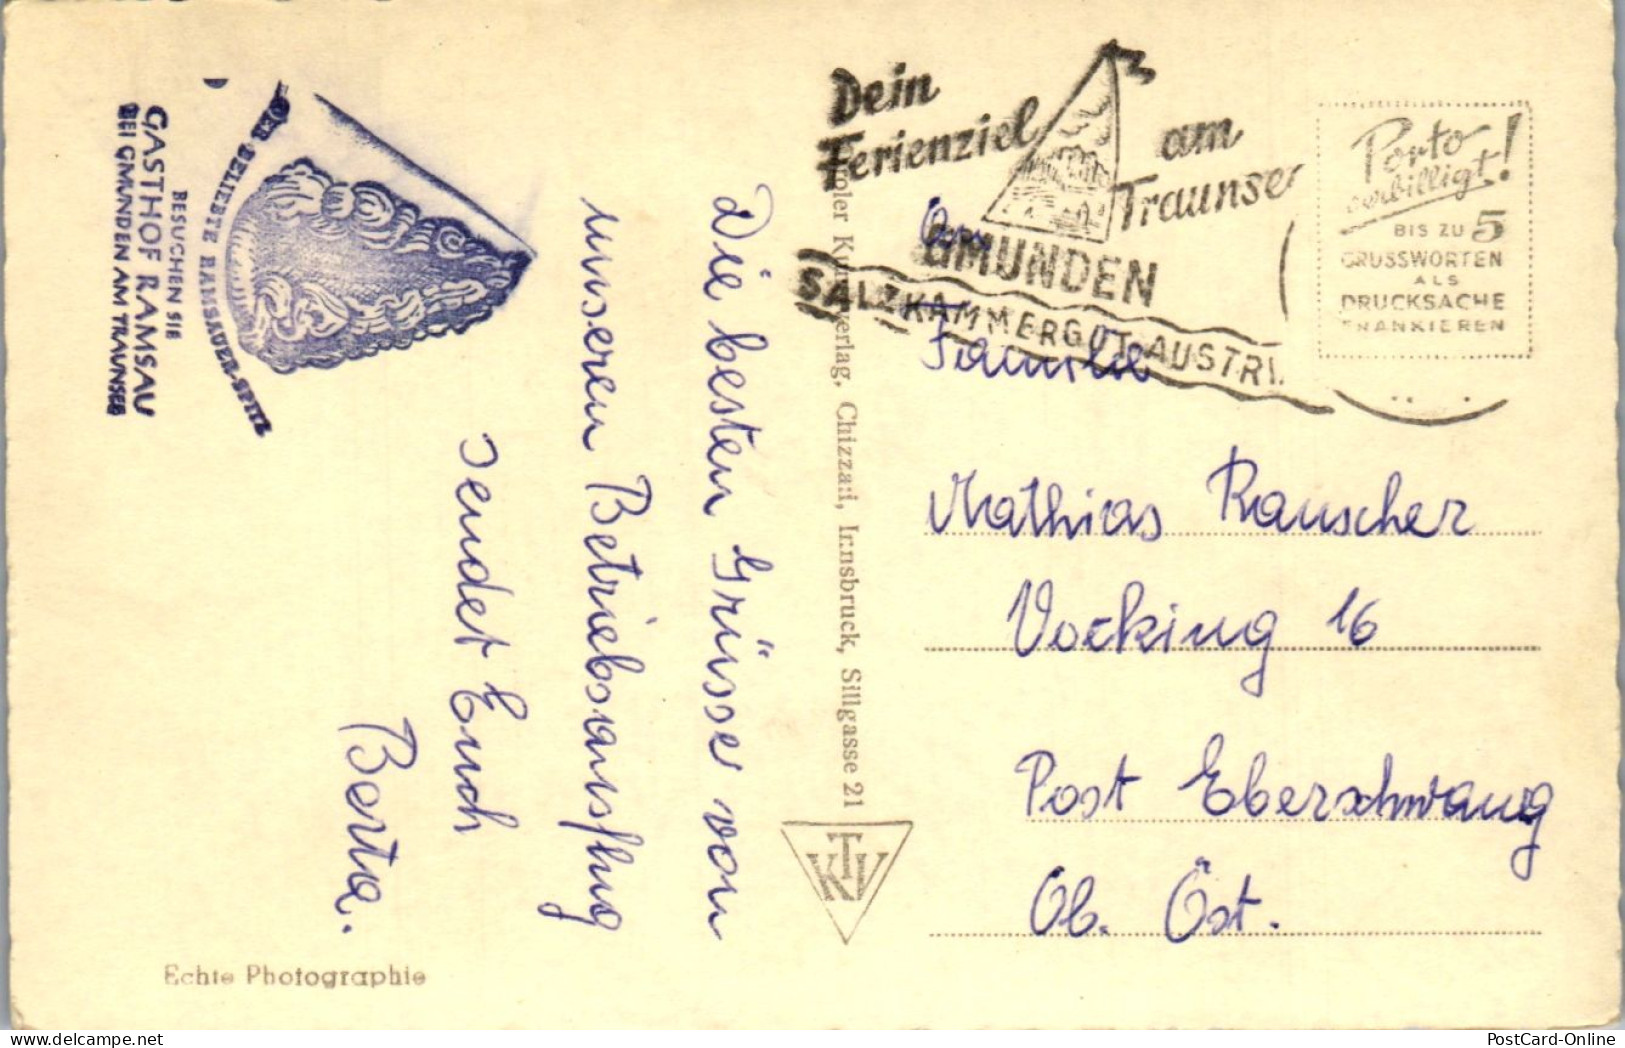 BESUCHEN SIE
GASTHOF RAMSAU
BEI GMUNDEN AM TRAUNSEE
DER BELIEBTE RAMSAUER-SPITZ
Die besten Grüsse von
unserem Betriebsausflug
sendet Euch
Berta.
Echte Photographie
Tiroler Kunstverlag, Chizzali, Innsbruck, Sillgasse 21
TKV
Dein
Ferienziel
am
Traunsee
GMUNDEN
SALZKAMMERGUT-AUSTRI
Porto
verbilligt!
BIS ZU 5
GRUSSWORTEN
ALS
DRUCKSACHE
FRANKIEREN
Familie
Mathias Rauscher
Vocking 16
Post Eberschwang
Ob. Öst.
PostCard-Online